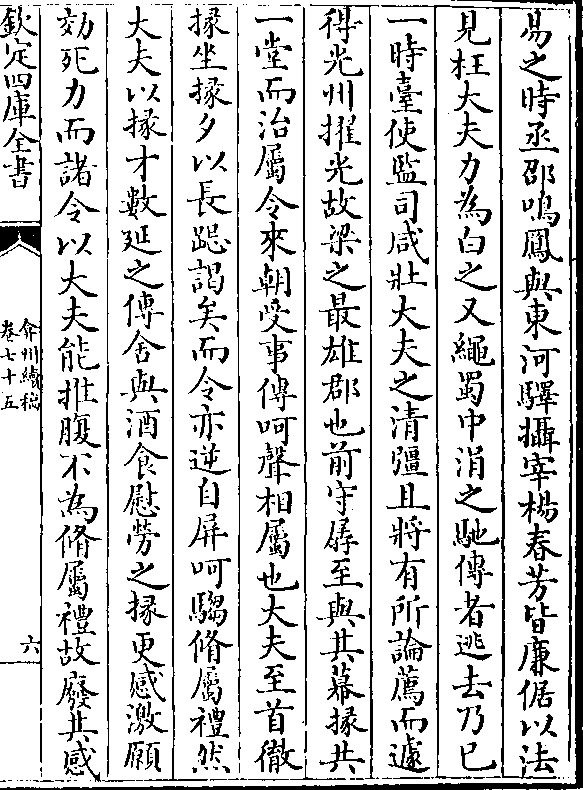 易之時丞邵鳴鳳與東河驛攝宰楊春芳皆廉倨以法
見枉大夫力為白之又繩蜀中涓之馳傳者逃去乃已
一時臺使監司咸壯大夫之清彊且將有所論薦而遽
得光州擢光故梁之最雄郡也前守孱至與其幕掾共
一堂而治屬令來朝受事傳呵聲相屬也大夫至首徹
掾坐掾夕以長跽謁矣而令亦逆自屏呵騶脩屬禮然
大夫以掾才數延之傳舍與酒食慰勞之掾更感激願
効死力而諸令以大夫能推腹不為脩屬禮故廢其感
欽定四庫全書
弇州續稿
卷七十五
六